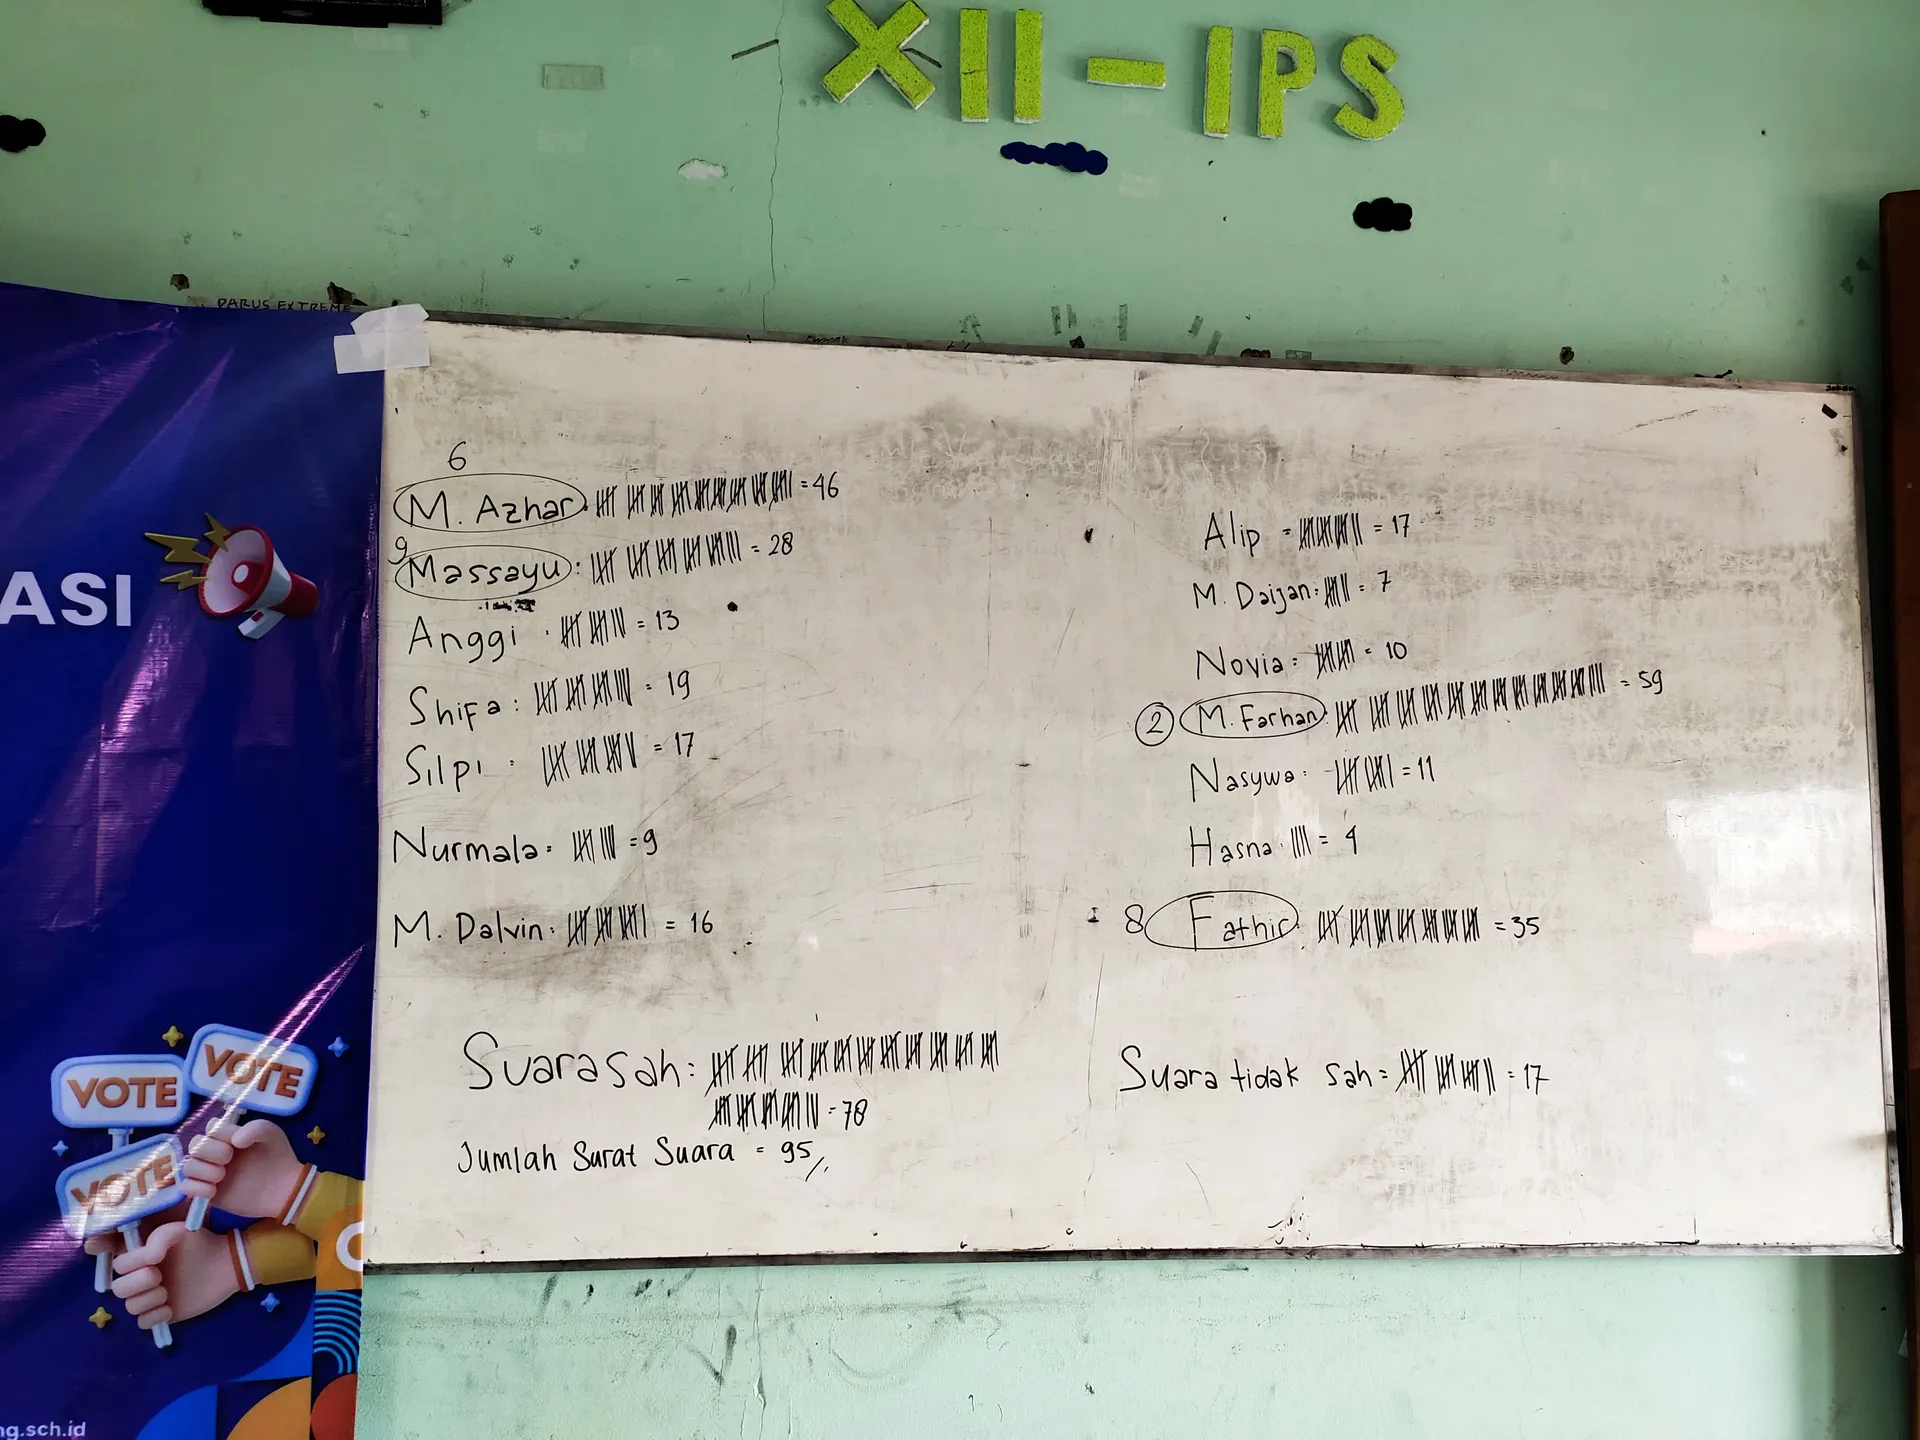 XII-IPS
DARUS EXTREME
ASI
VOTE
VOTE
VOTE
ng.sch.id
6
M. Azhar = 46
9
Massayu: = 28
Anggi = 13
Shifa: = 19
Silpi = 17
Nurmala = 9
M. Dalvin: = 16
Alip = = 17
M. Daijan: = 7
Novia = = 10
2 M. Farhan: = 59
Nasywa: = 11
Hasna = 4
8 Fathir: = 35
Suara sah:
= 78
Jumlah Surat Suara = 95
Suara tidak sah = = 17